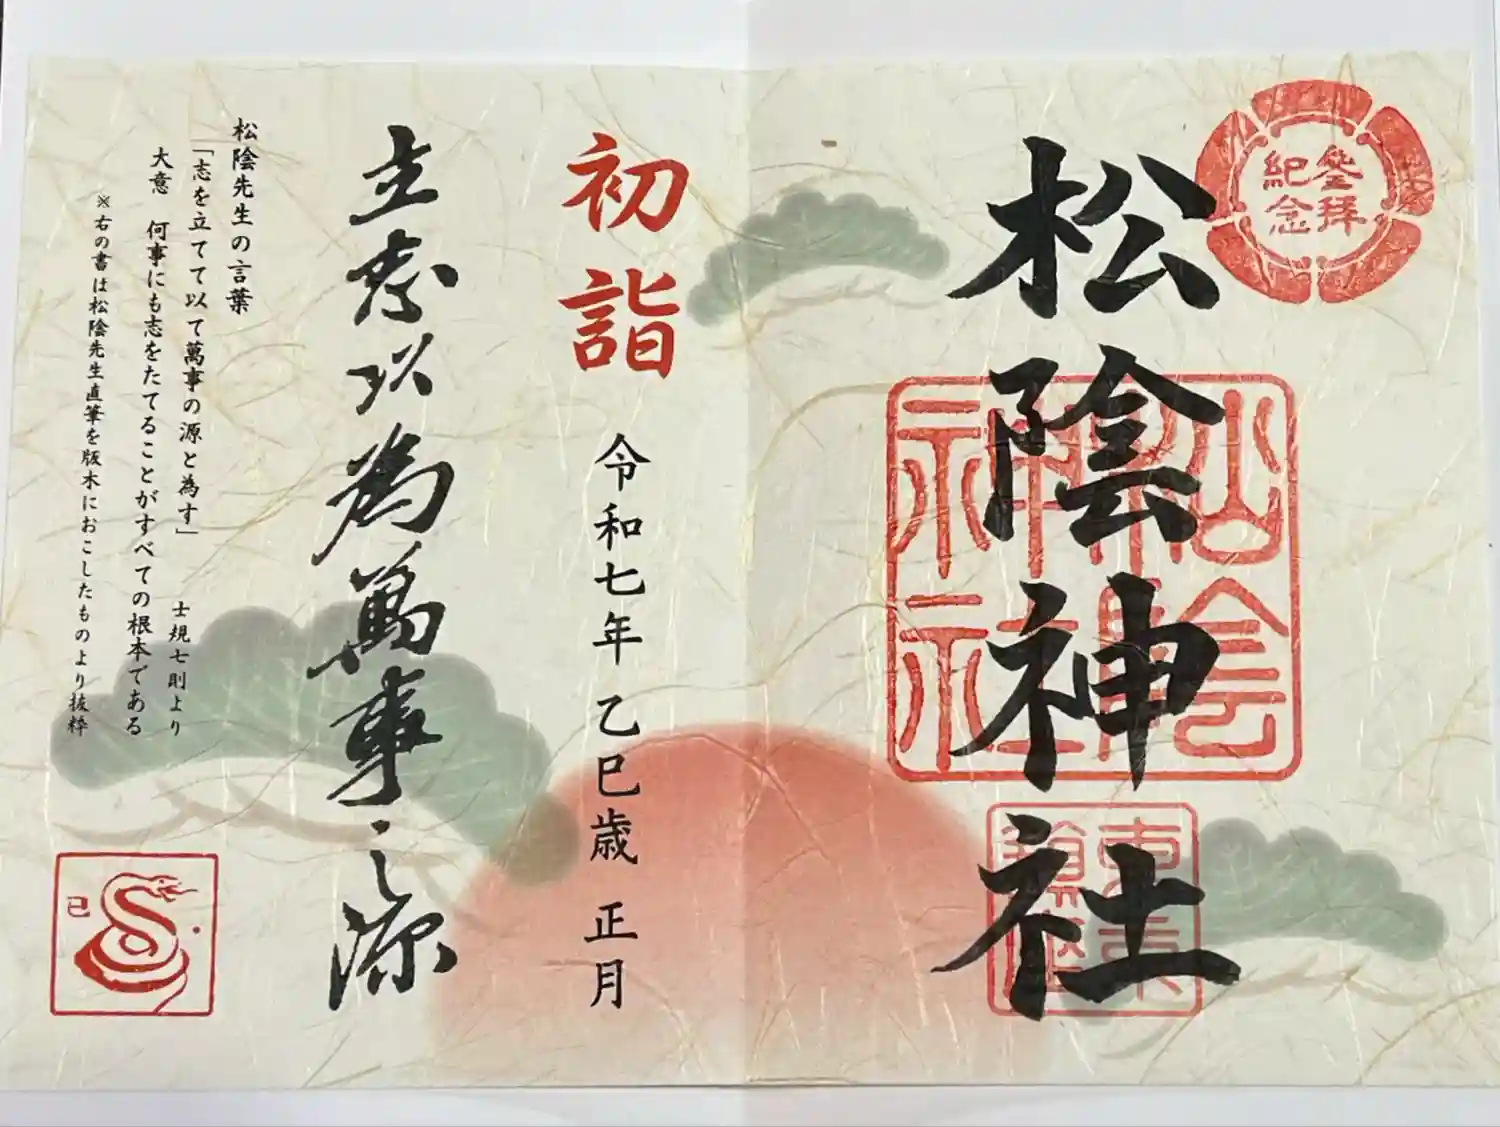 参拜
紀念
松陰神社
松陰
神社
初詣
令和七年 乙巳歳 正月
立志以為萬事之源
松陰先生の言葉
「志を立てて以て萬事の源と為す」
士規七則より
大意 何事にも志をたてることがすべての根本である
※右の書は松陰先生直筆を版木におこしたものより抜粋
巳